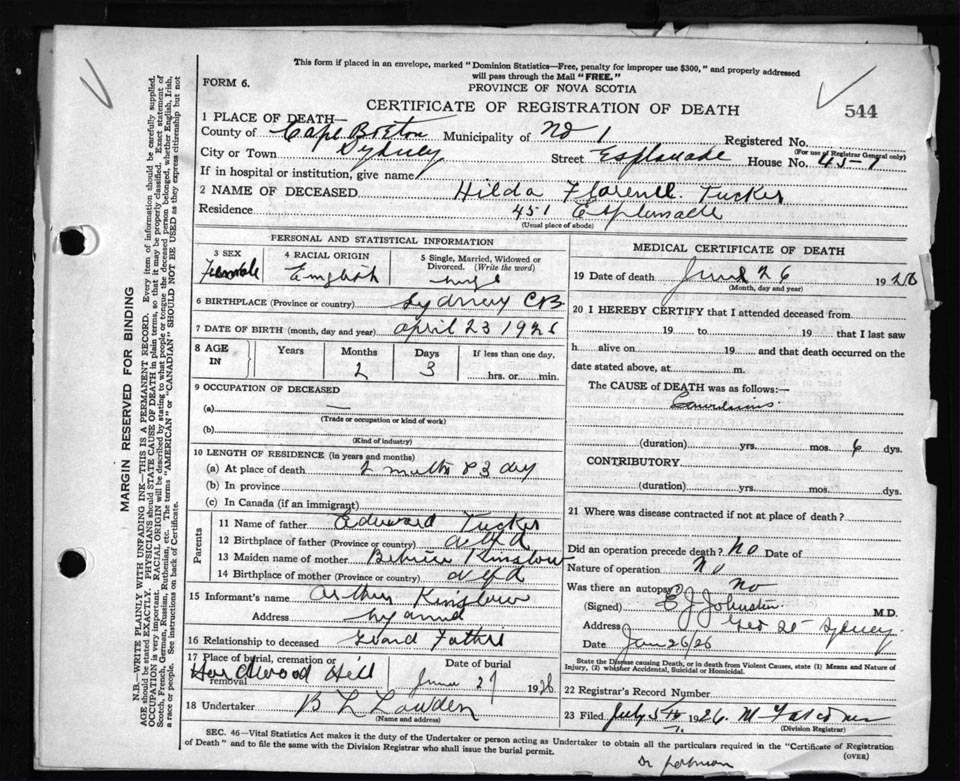 This form if placed in an envelope, marked "Dominion Statistics—Free, penalty for improper use $300," and properly addressed
will pass through the Mail "FREE."
FORM 6.
PROVINCE OF NOVA SCOTIA
CERTIFICATE OF REGISTRATION OF DEATH
544
1 PLACE OF DEATH—
County of Cape Breton Municipality of No 1 Registered No.
(For use of Registrar General only)
City or Town Sydney Street Esplanade House No. 451
If in hospital or institution, give name
2 NAME OF DECEASED Hilda Florence Tucker
Residence 451 Esplanade
(Usual place of abode)
PERSONAL AND STATISTICAL INFORMATION
3 SEX Female
4 RACIAL ORIGIN English
5 Single, Married, Widowed or Divorced. (Write the word) single
6 BIRTHPLACE (Province or country) Sydney CB
7 DATE OF BIRTH (month, day and year) April 23 1926
8 AGE IN Years Months 2 Days 3 If less than one day, hrs. or min.
9 OCCUPATION OF DECEASED
(a) —
(Trade or occupation or kind of work)
(b)
(Kind of industry)
10 LENGTH OF RESIDENCE (in years and months)
(a) At place of death 2 months & 3 day
(b) In province
(c) In Canada (if an immigrant)
Parents
11 Name of father Edward Tucker
12 Birthplace of father (Province or country) Nfld
13 Maiden name of mother Kinslow
14 Birthplace of mother (Province or country) Nfld
15 Informant's name Arthur Kinslow
Address
16 Relationship to deceased Grand Father
17 Place of burial, cremation or removal Hardwood Hill
Date of burial June 27 1926
18 Undertaker B L Lowden
(Name and address)
MEDICAL CERTIFICATE OF DEATH
19 Date of death June 26 1926
(Month, day and year)
20 I HEREBY CERTIFY that I attended deceased from
19 to 19 that I last saw
h alive on 19 and that death occurred on the
date stated above, at m.
The CAUSE of DEATH was as follows:—
(duration) yrs. mos. 6 dys.
CONTRIBUTORY
(duration) yrs. mos. dys.
21 Where was disease contracted if not at place of death?
Did an operation precede death? No Date of
Nature of operation No
Was there an autopsy? No
(Signed) E J Johnston M.D.
Address Geo St Sydney
Date June 26/26
State the Disease causing Death, or in death from Violent Causes, state (1) Means and Nature of
Injury, (2) whether Accidental, Suicidal or Homicidal.
22 Registrar's Record Number
23 Filed July 5th 1926.
(Division Registrar)
SEC. 46—Vital Statistics Act makes it the duty of the Undertaker or person acting as Undertaker to obtain all the particulars required in the "Certificate of Registration
of Death" and to file the same with the Division Registrar who shall issue the burial permit.
(OVER)
MARGIN RESERVED FOR BINDING
N.B.—WRITE PLAINLY WITH UNFADING INK—THIS IS A PERMANENT RECORD. Every item of information should be carefully supplied.
AGE should be stated EXACTLY. PHYSICIANS should STATE CAUSE OF DEATH in plain terms, so that it may be properly classified. Exact statement of
OCCUPATION is very important. RACIAL ORIGIN will be described by stating to what people or tongue the deceased person belonged, whether English, Irish,
Scotch, French, German, Russian, Ruthenian, etc. The terms "AMERICAN" or "CANADIAN" SHOULD NOT BE USED as they express citizenship but not
a race or people. See instructions on back of Certificate.